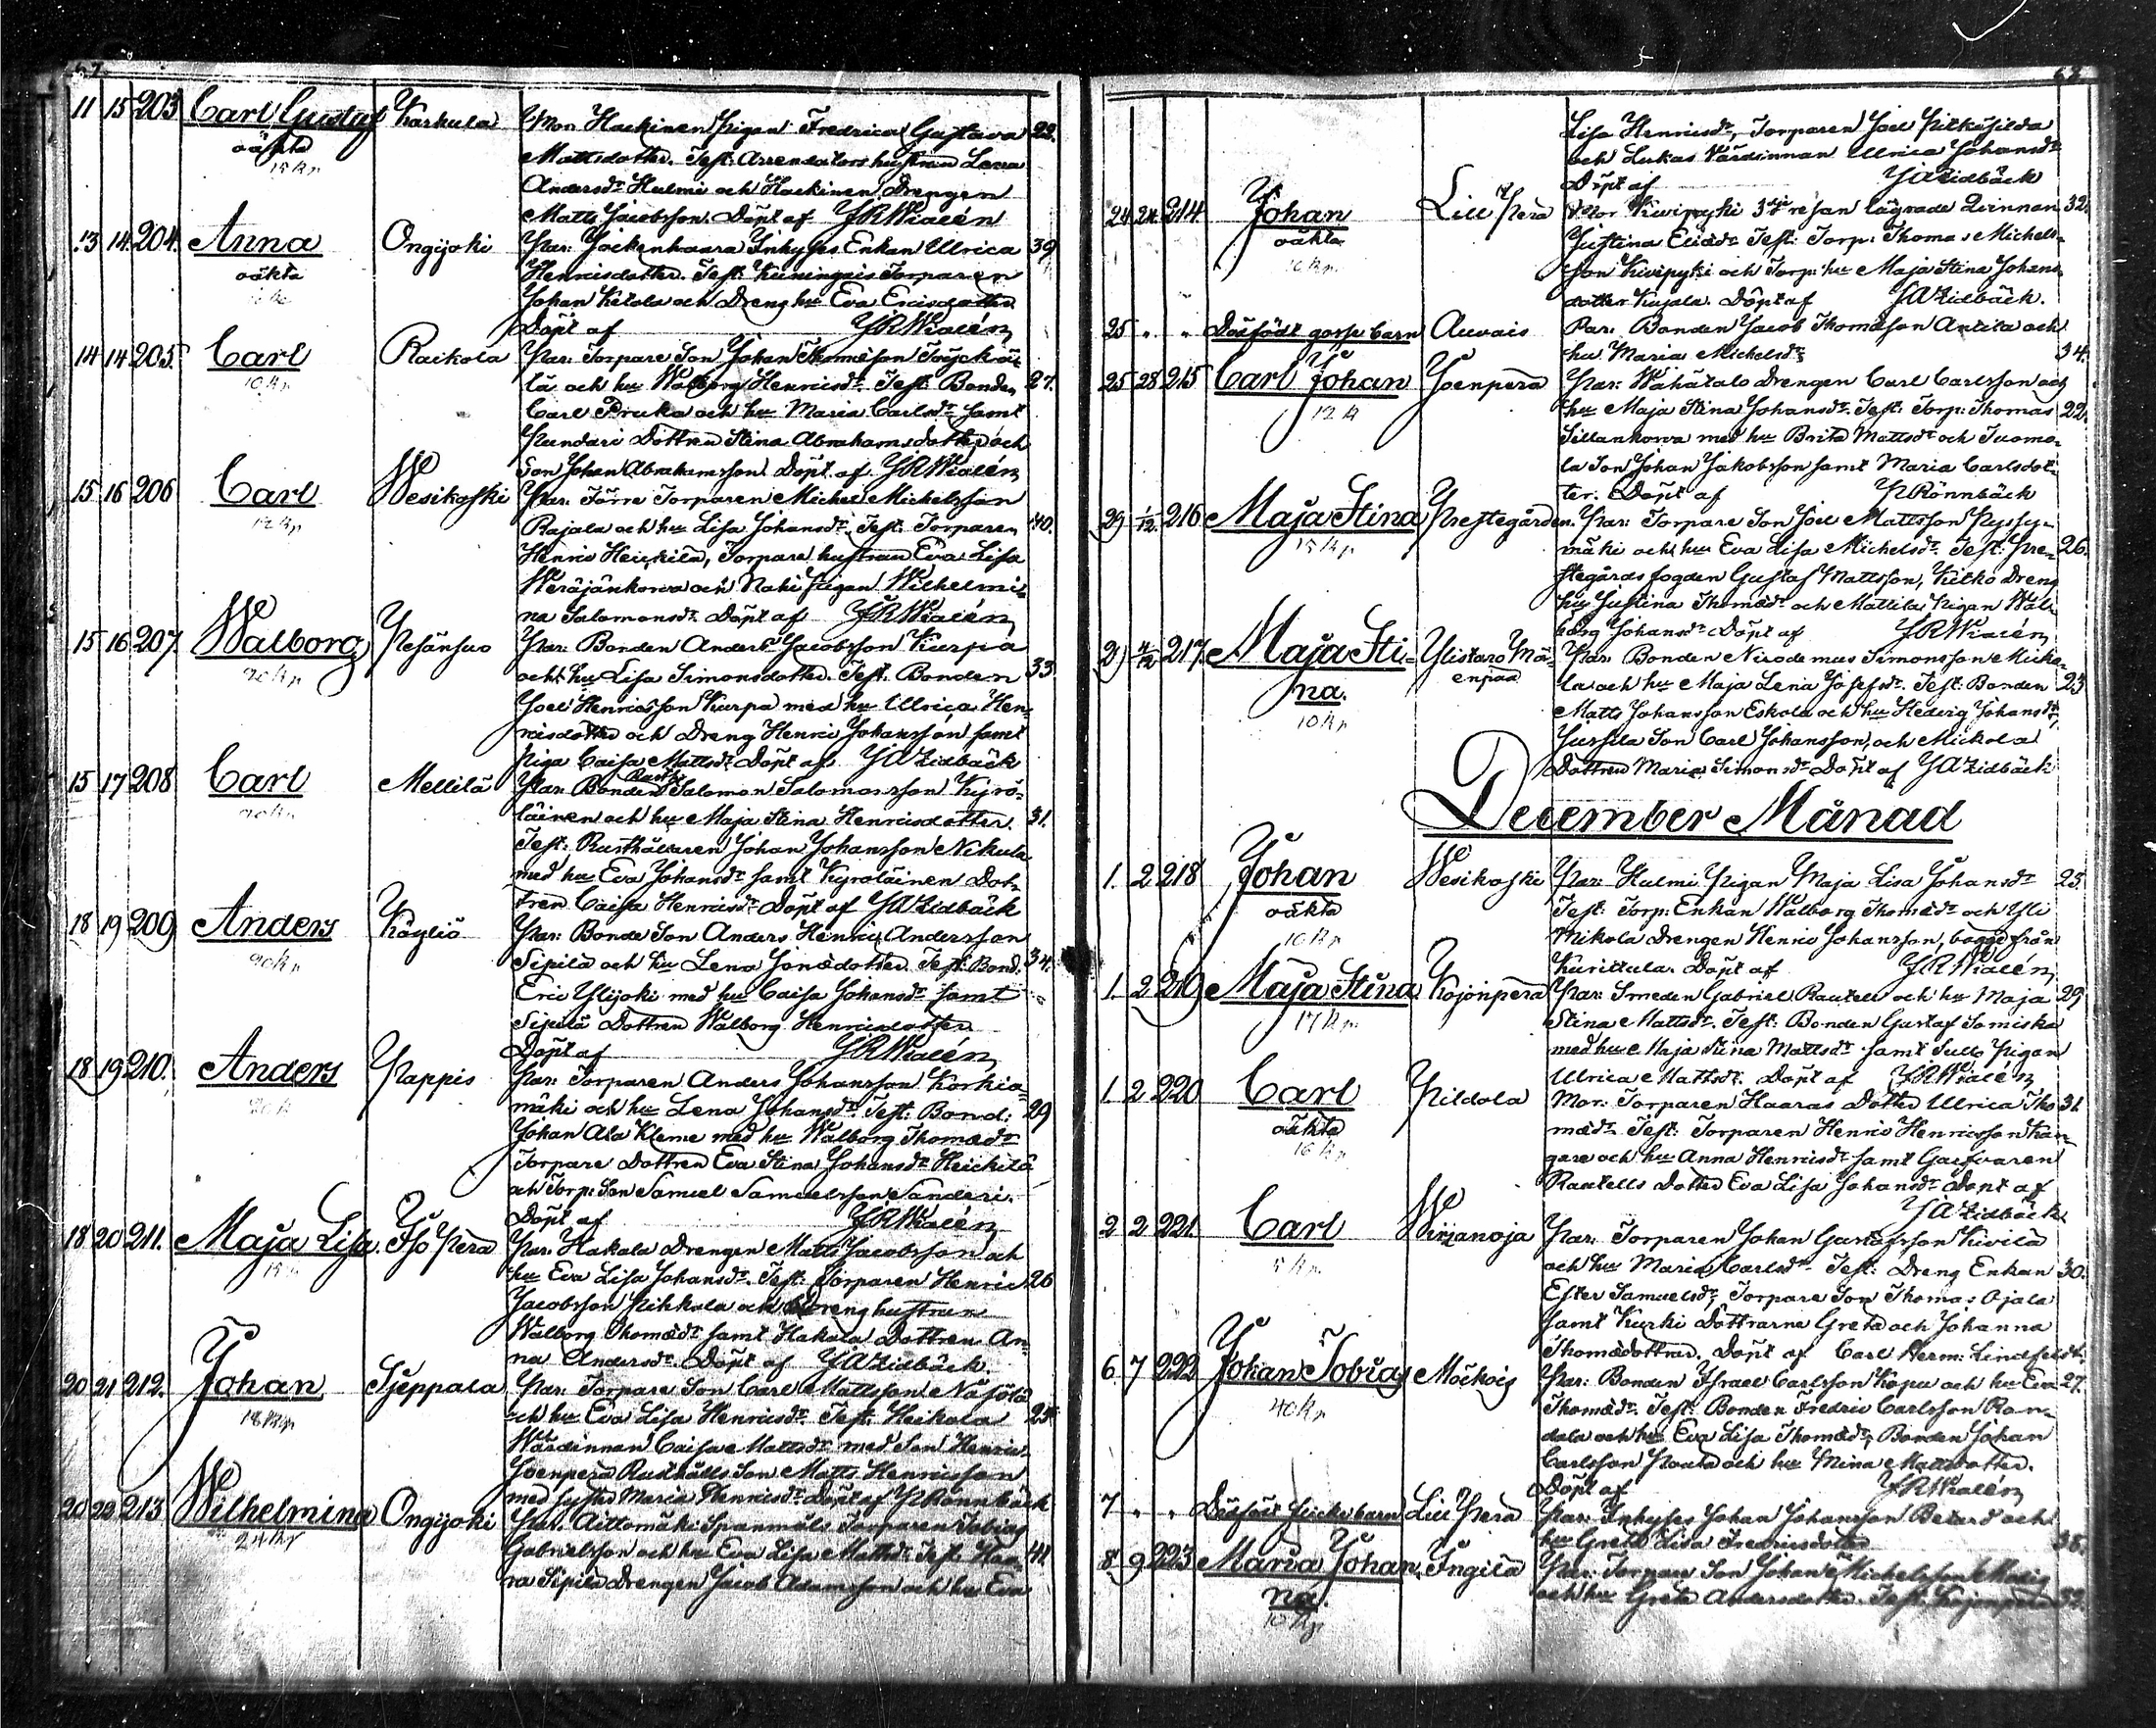 67.
11 15 203 Carl Gustaf Karkula Mor: Hackinen Pigan Fredrica Gustava 22.
oäkta Mattsdotter. Test: Arrendators hustrun Lena
15 kp Andersdr Hulmi och Hackinen Drengen
Matts Jacobsson. Döpt af JRWialén
13 14 204. Anna Ongijoki Par: Inhyses Enkan Ulrica 39
oäkta Henricsdotter. Test: Torparen
Johan Ketola och Dreng hu Eva Ericsdotter
Döpt af JRWialén
14 14 205 Carl Raikola Par: Torpare Son Johan Thomasson
10 kp lä och hu Walborg Henricsdr Test: Bonden 27.
Carl Pruka och hu Maria Carlsdr samt
Pundari Dottren Stina Abrahamsdotter och
Son Johan Abrahamsson Döpt af JRWialén
15 16 206 Carl Wesikoski Par: Förre Torparen Michel Michelsson
12 kp Rajala och hu Lisa Johansdr. Test: Torparen 40.
Henric Heickilä, Torpare hustrun Eva Lisa
Weräjänkorwa och Naki Pigan Wilhelmi-
na Salomonsdr. Döpt af JRWialén
15 16 207 Walborg Pesänsuo Par: Bonden Anders Jacobsson Kurpa
20 kp och hu Lisa Simonsdotter. Test: Bonden 33
Joel Henricsson Kurpa med hu Ulrica Hen-
ricsdotter och Dreng Henric Johansson samt
Piga Caisa Mattsdr Döpt af JAZidbäck
15 17 208 Carl Mellilä Par: Bonden Salomon Salomonsson Kyrö-
20 kp läinen och hu Maja Stina Henricsdotter. 31.
Test: Rusthållaren Johan Johansson Nikula
med hu Eva Johansdr samt Kyroläinen Dot-
tren Caisa Henricsdr Döpt af JAZidbäck
18 19 209 Anders Köyliö Par: Bonde Son Anders Henric Andersson
20 kp Sipilä och hu Lena Jonædotter. Test: Bond. 34.
Eric Ylijoki med hu Caisa Johansdr samt
Sipilä Dottren Walborg Henricsdotter
Döpt af JRWialén
18 19 210. Anders Pappis Par: Torparen Anders Johansson Korkia-
mäki och hu Lena Johansdr. Test: Bond: 29
Johan Ala Kleme med hu Walborg Thomædr
Torpare Dottren Eva Stina Johansdr Heickilä
och Torp: Son Samuel Samuelsson Sanderi.
Döpt af JRWialén
18 20 211. Maja Lisa Iso Pera Par: Hakala Drengen Matts Jacobsson och
hu Eva Lisa Johansdr. Test: Torparen Henric 26
Jacobsson Pihkola och Dreng hustrun
Walborg Thomædr samt Hakala Dottren An-
na Andersdr. Döpt af JAZidbäck
20 21 212. Johan Sjeppala Par: Torpare Son Carl Mattsson
18 kp och hu Eva Lisa Henricsdr. Test: Heikola
Wärdinnan Caisa Mattsdr med Son Henric
Joenpera Rusthålls Son Matts Henricsson
med syster Maria Henricsdr Döpt af Rönnbäck
20 22 213 Wilhelmina Ongijoki Par: Aittomäki Spanmåls Torparen Tobias
24 kp Gabrielsson och hu Eva Lisa Mattsdr. Test: Haa- 41
ra Sipilä Drengen Jacob Adamsson och hu Eva
Lisa Henricsdr, Torparen Joel
och Lukas Värdinnan Ulrica Johansdr
Döpt af JAZidbäck
24 24 214 Johan Lill Pera Mor Kivipyki 3dje resan lägrade Qvinnan 32.
oäkta Justina Eliædr Test: Torp: Thomas Michels-
10 kp son Kivipyki och Torp: hu Maja Stina Johans
dotter Kujala. Döpt af JAZidbäck.
25 " " Dödfödt gosse barn Auvais Par: Bonden Jacob Thomasson Antila och
hu Maria Michelsdr 34.
25 28 215 Carl Johan Joenpera Par: Wähätalo Drengen Carl Carlsson och
hu Maja Stina Johansdr. Test: Torp: Thomas 22.
Sillankorva med hu Brita Mattsdr och Tuomo-
la Son Johan Jakobsson samt Maria Carlsdot-
ter. Döpt af Rönnbäck
29 1/12 216 Maja Stina Prestegården. Par: Torpare Son Joel Mattsson Pyssy-
15 kp mäki och hu Eva Lisa Michelsdr. Test: Pre- 26.
stegårds fogden Gustaf Mattsson, Kitko Dreng
hu Justina Thomædr och Mattila Pigan Wal-
borg Johansdr Döpt af JRWialén
29 4/12 217. Maja Sti- Ylistaro Mä- Par: Bonden Nicodemus Simonsson Micko-
na. enpää la och hu Maja Lena Josefsdr. Test: Bonden 23
10 kp Matts Johansson Eskola och hu Hedvig Johansdr,
Jussila Son Carl Johansson, och Mickola
Dottren Maria Simonsdr Döpt af JAZidbäck
December Månad
1. 2 218 Johan Wesikoski Par: Hulmi Pigan Maja Lisa Johansdr 25.
oäkta Test: Torp: Enkan Walborg Thomædr och Yli
10 kp Mikola Drengen Henric Johansson, bägge från
Kurittula. Döpt af JRWialén
1. 2 219 Maja Stina Kojonpera Par: Smeden Gabriel Rautell och hu Maja 29
17 kp Stina Mattsdr. Test: Bonden Gustaf Somiska
med hu Maja Stina Mattsdr samt Pigan
Ulrica Mattsdr. Döpt af JRWialén
1. 2 220 Carl Pildola Mor: Torparen Haaras Dotter Ulrica Tho- 31.
oäkta mædr. Test: Torparen Henric Henricsson Kan-
16 kp gare och hu Anna Henricsdr samt Garfvaren
Rautells Dotter Eva Lisa Johansdr Döpt af
JAZidbäck
2 2 221. Carl Wirzanoja Par: Torparen Johan Gustafsson Kivilä
och hu Maria Carlsdr. Test: Dreng Enkan 30.
Ester Samuelsdr, Torpare Son Thomas Ojala
samt Kurki Döttrarna Greta och Johanna
Thomædöttrar. Döpt af Carl Herm: Lindfeldt.
6. 7 222 Johan Tobias Mäkois Par: Bonden Israel Carlsson Kopu och hu Eva 27.
40 kp Thomædr. Test: Bonden Fredric Carlsson Ran-
dala och hu Eva Lisa Thomædr, Bonden Johan
Carlsson och hu Mina Mattsdotter.
Döpt af JRWialén
7 " " Dödfödt flicke barn Lill Pera Par: Inhyses Johan Johansson och
hu Greta Lisa Fredricsdotter 38.
8. 9 223 Maria Johan- Ingila Par: Torpare Son Johan Michelsson
na. och hu Greta Andersdotter. Test:
10 kp